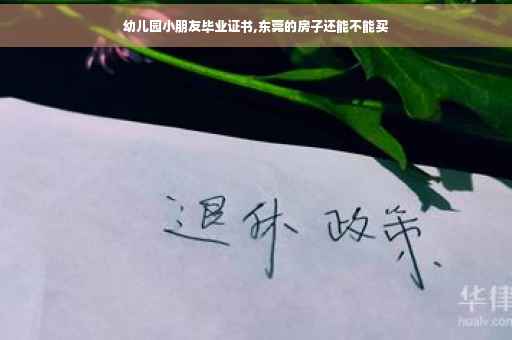 幼儿园小朋友毕业证书,东莞的房子还能不能买
退休 政策
华律
hualv.com